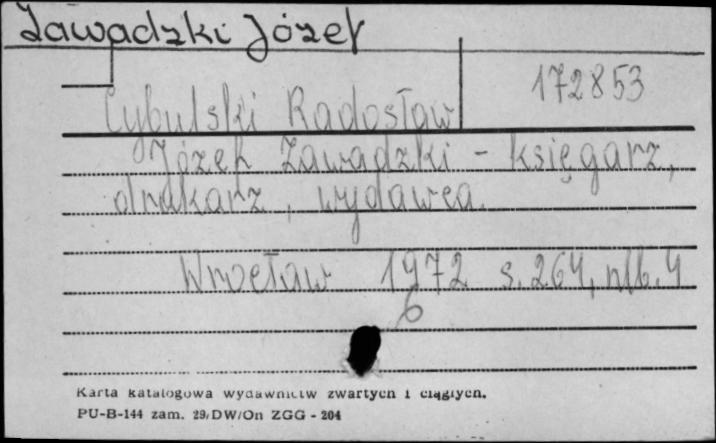 Zawadzki Józef
172853
Cybulski Radosław
Józef Zawadzki - księgarz,
drukarz, wydawca.
Wrocław 1972 s. 264, nlb. 4
6
Karta katalogowa wydawnictw zwartych i ciągłych.
PU-B-144 zam. 29/DW/On ZGG - 204